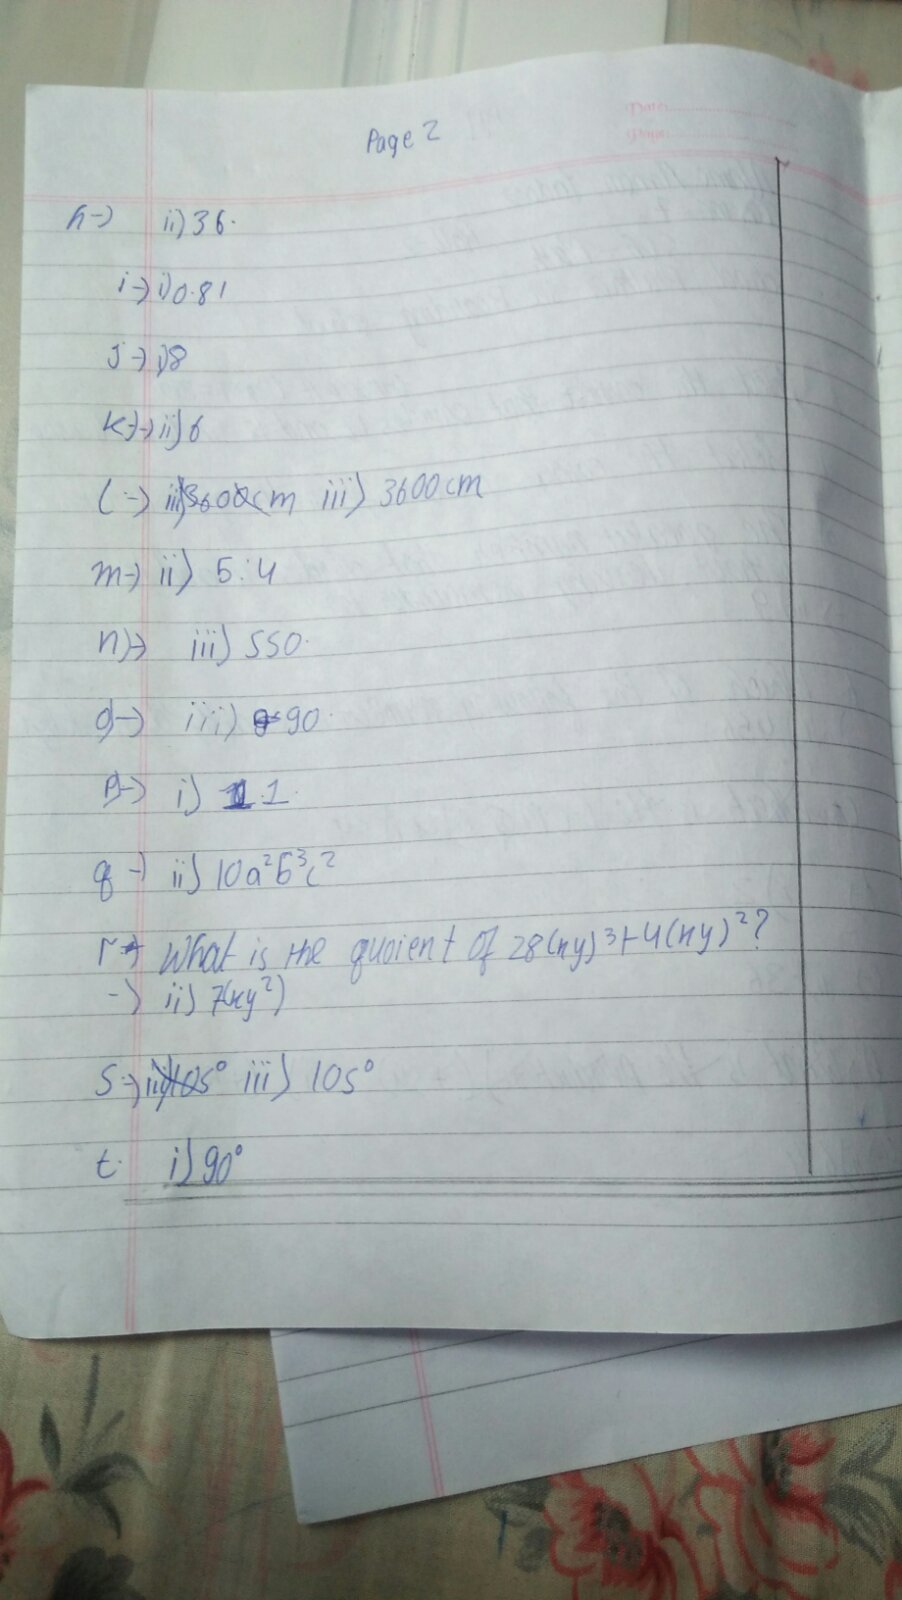 Date:
Page:
Page 2
h-) ii) 36.
i-) i) 0.81
J-) i) 8
K-)-) ii) 6
l-) ii) 3600cm iii) 3600cm
m-) ii) 5:4
n)-) iii) 550.
o)-) iii) 90.
P)-) i) 1.
q-) ii) 10a²b³c²
r-) What is the quoient of 28(xy)³+4(xy)²?
-) ii) 7(xy²)
S-) ii) 105° iii) 105°
t. i) 90°